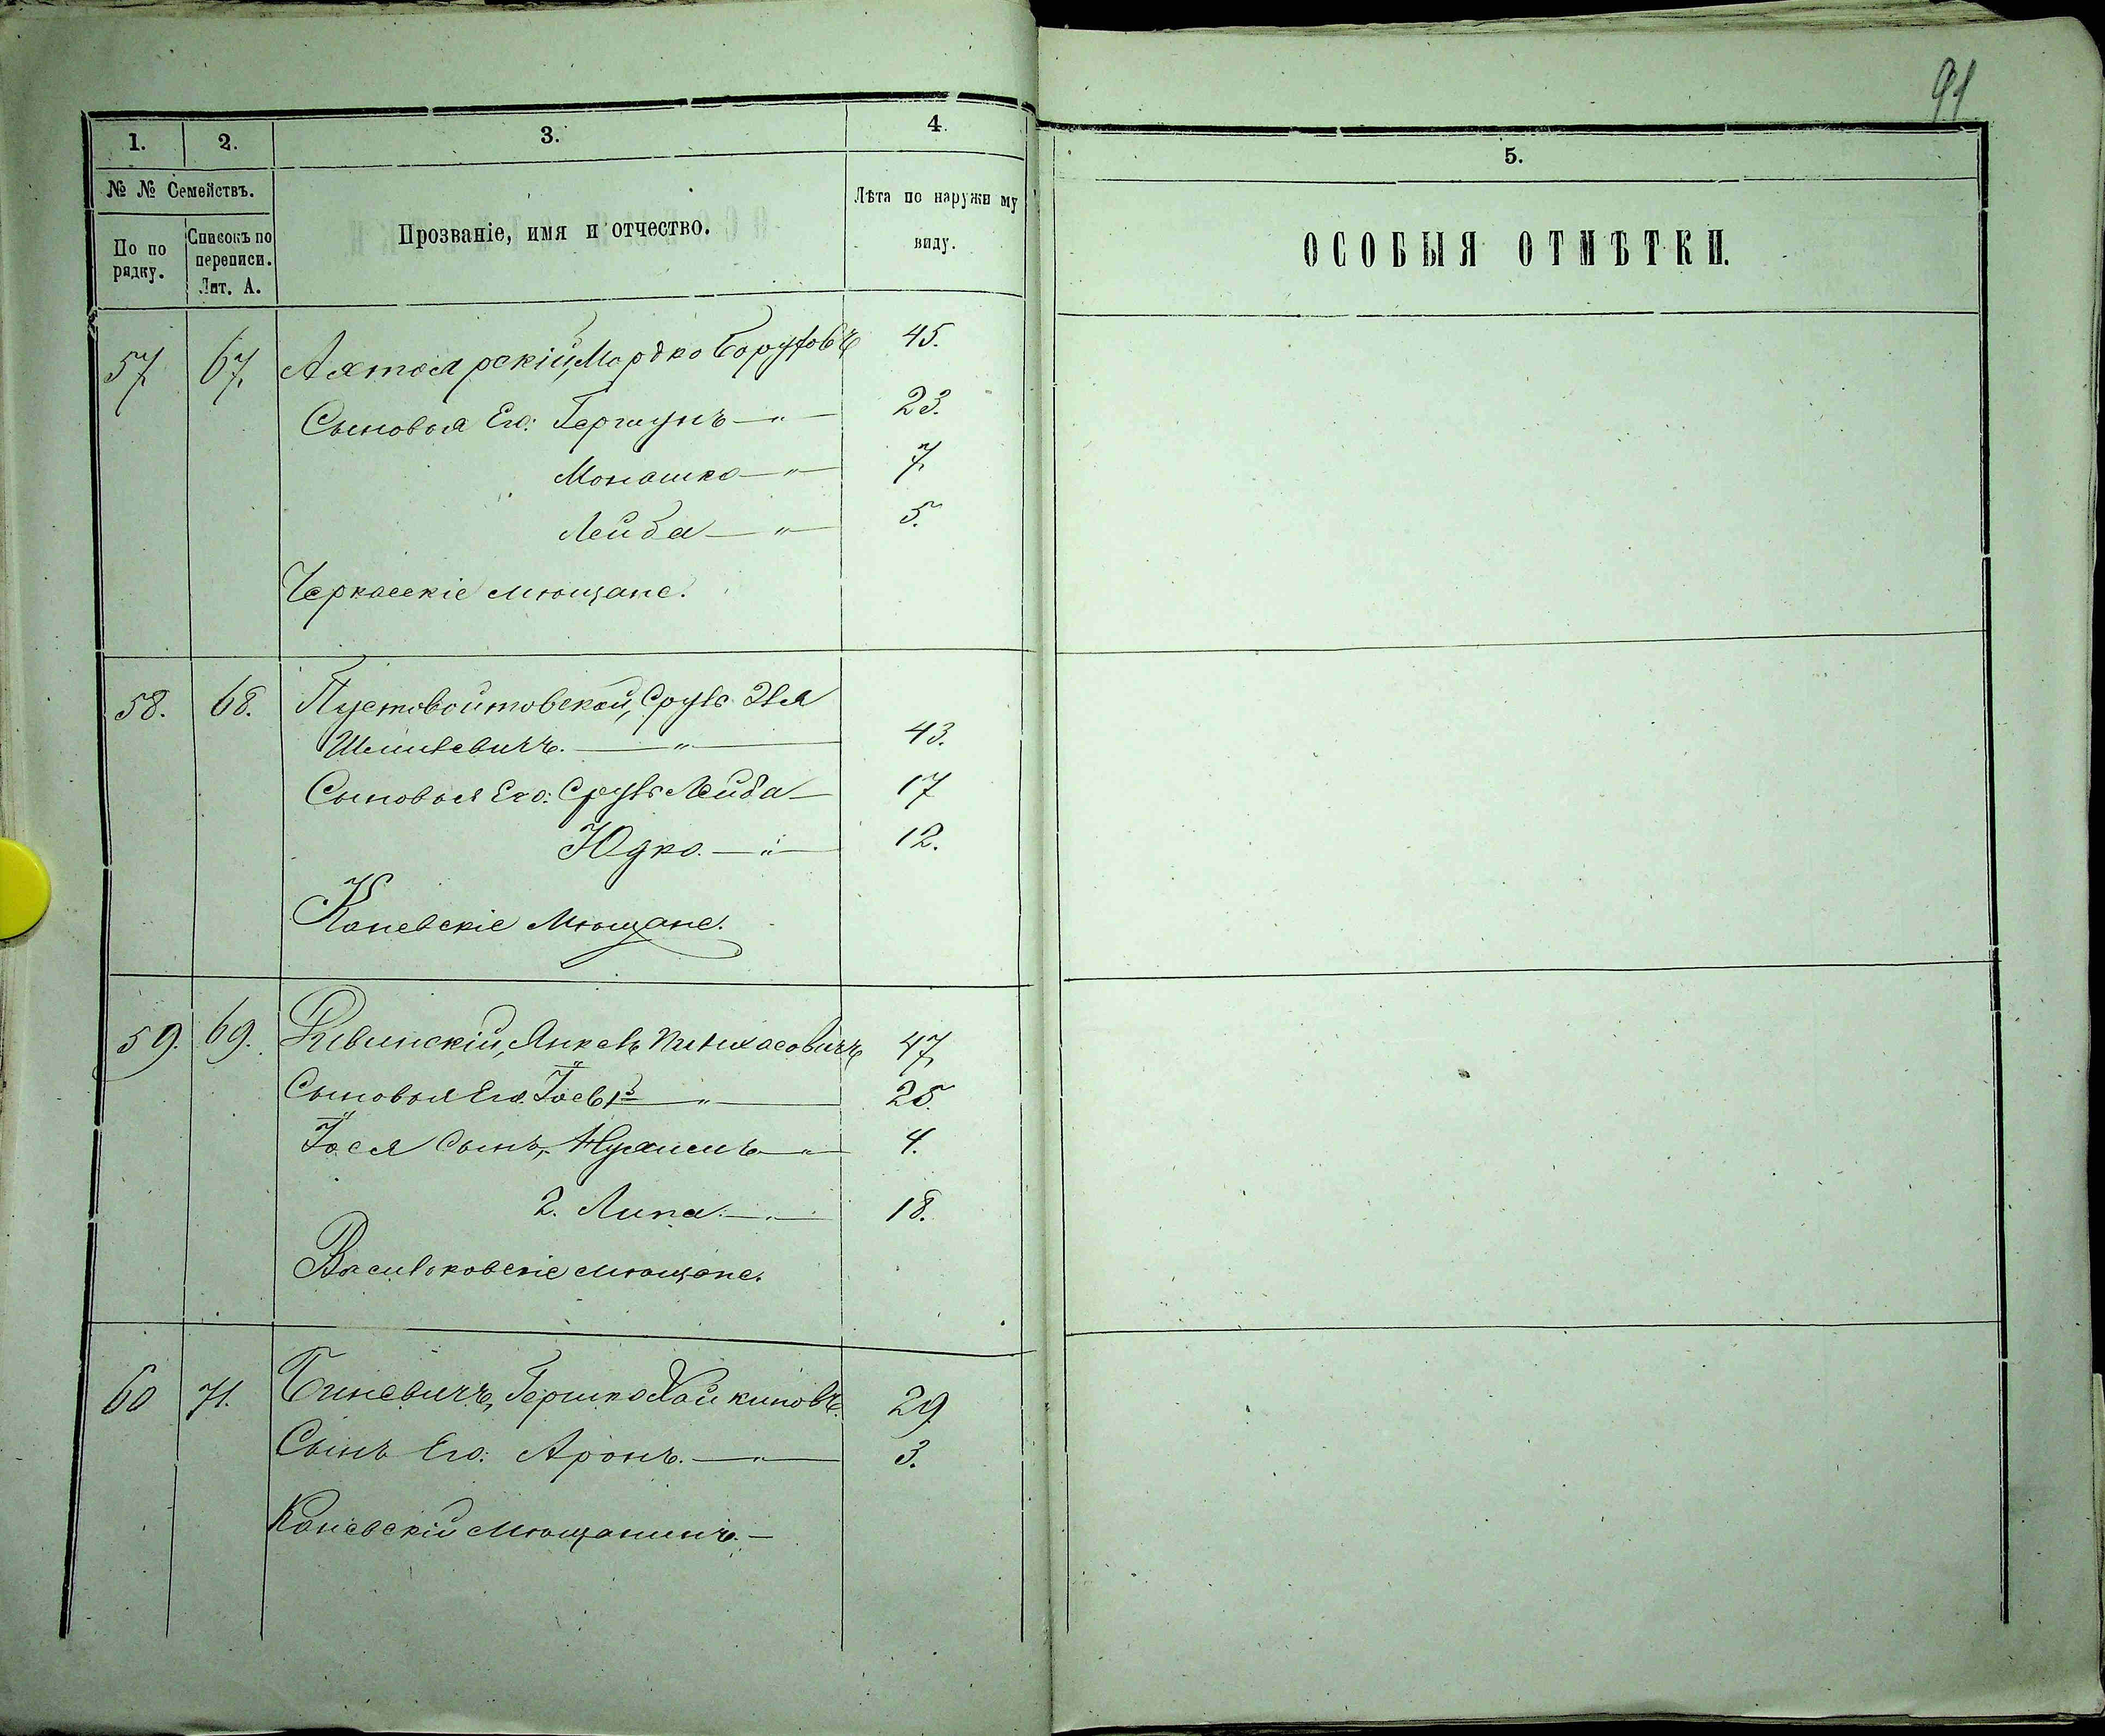 91
1. 2. 3. 4. 5.
№ № Семействъ.
По по рядку.
Списокъ по переписи. Лит. А.
Прозваніе, имя и отчество.
Лѣта по наружн му виду.
ОСОБЫЯ ОТМѢТКИ.
57 67. Ахтоярскій, Мордко Боруховъ 45.
Сыновья Его: Гершунъ — " — 23.
Монашко — " — 7.
Лейба — " — 5.
Черкасскіе мѣщане.
58. 68. Пустовойтовской, Сруль Эля
Шмилевичъ. — " — 43.
Сыновья Его: Сруль Лейба — 17
Юдко. — " — 12.
Каневскіе Мѣщане.
59. 69. Ривинскій, Янкель Пинхасовичъ 47.
Сыновья Его: Іось 1й — " — 25.
Іося Сынъ, Нухимъ — " — 4.
2. Липа. — " — 18.
Васильковскіе мѣщане.
60 71. Биневичъ, Гершко Хайкиновъ. 29
Сынъ Его: Аронъ. — " — 3.
Каневскій Мѣщанинъ. —